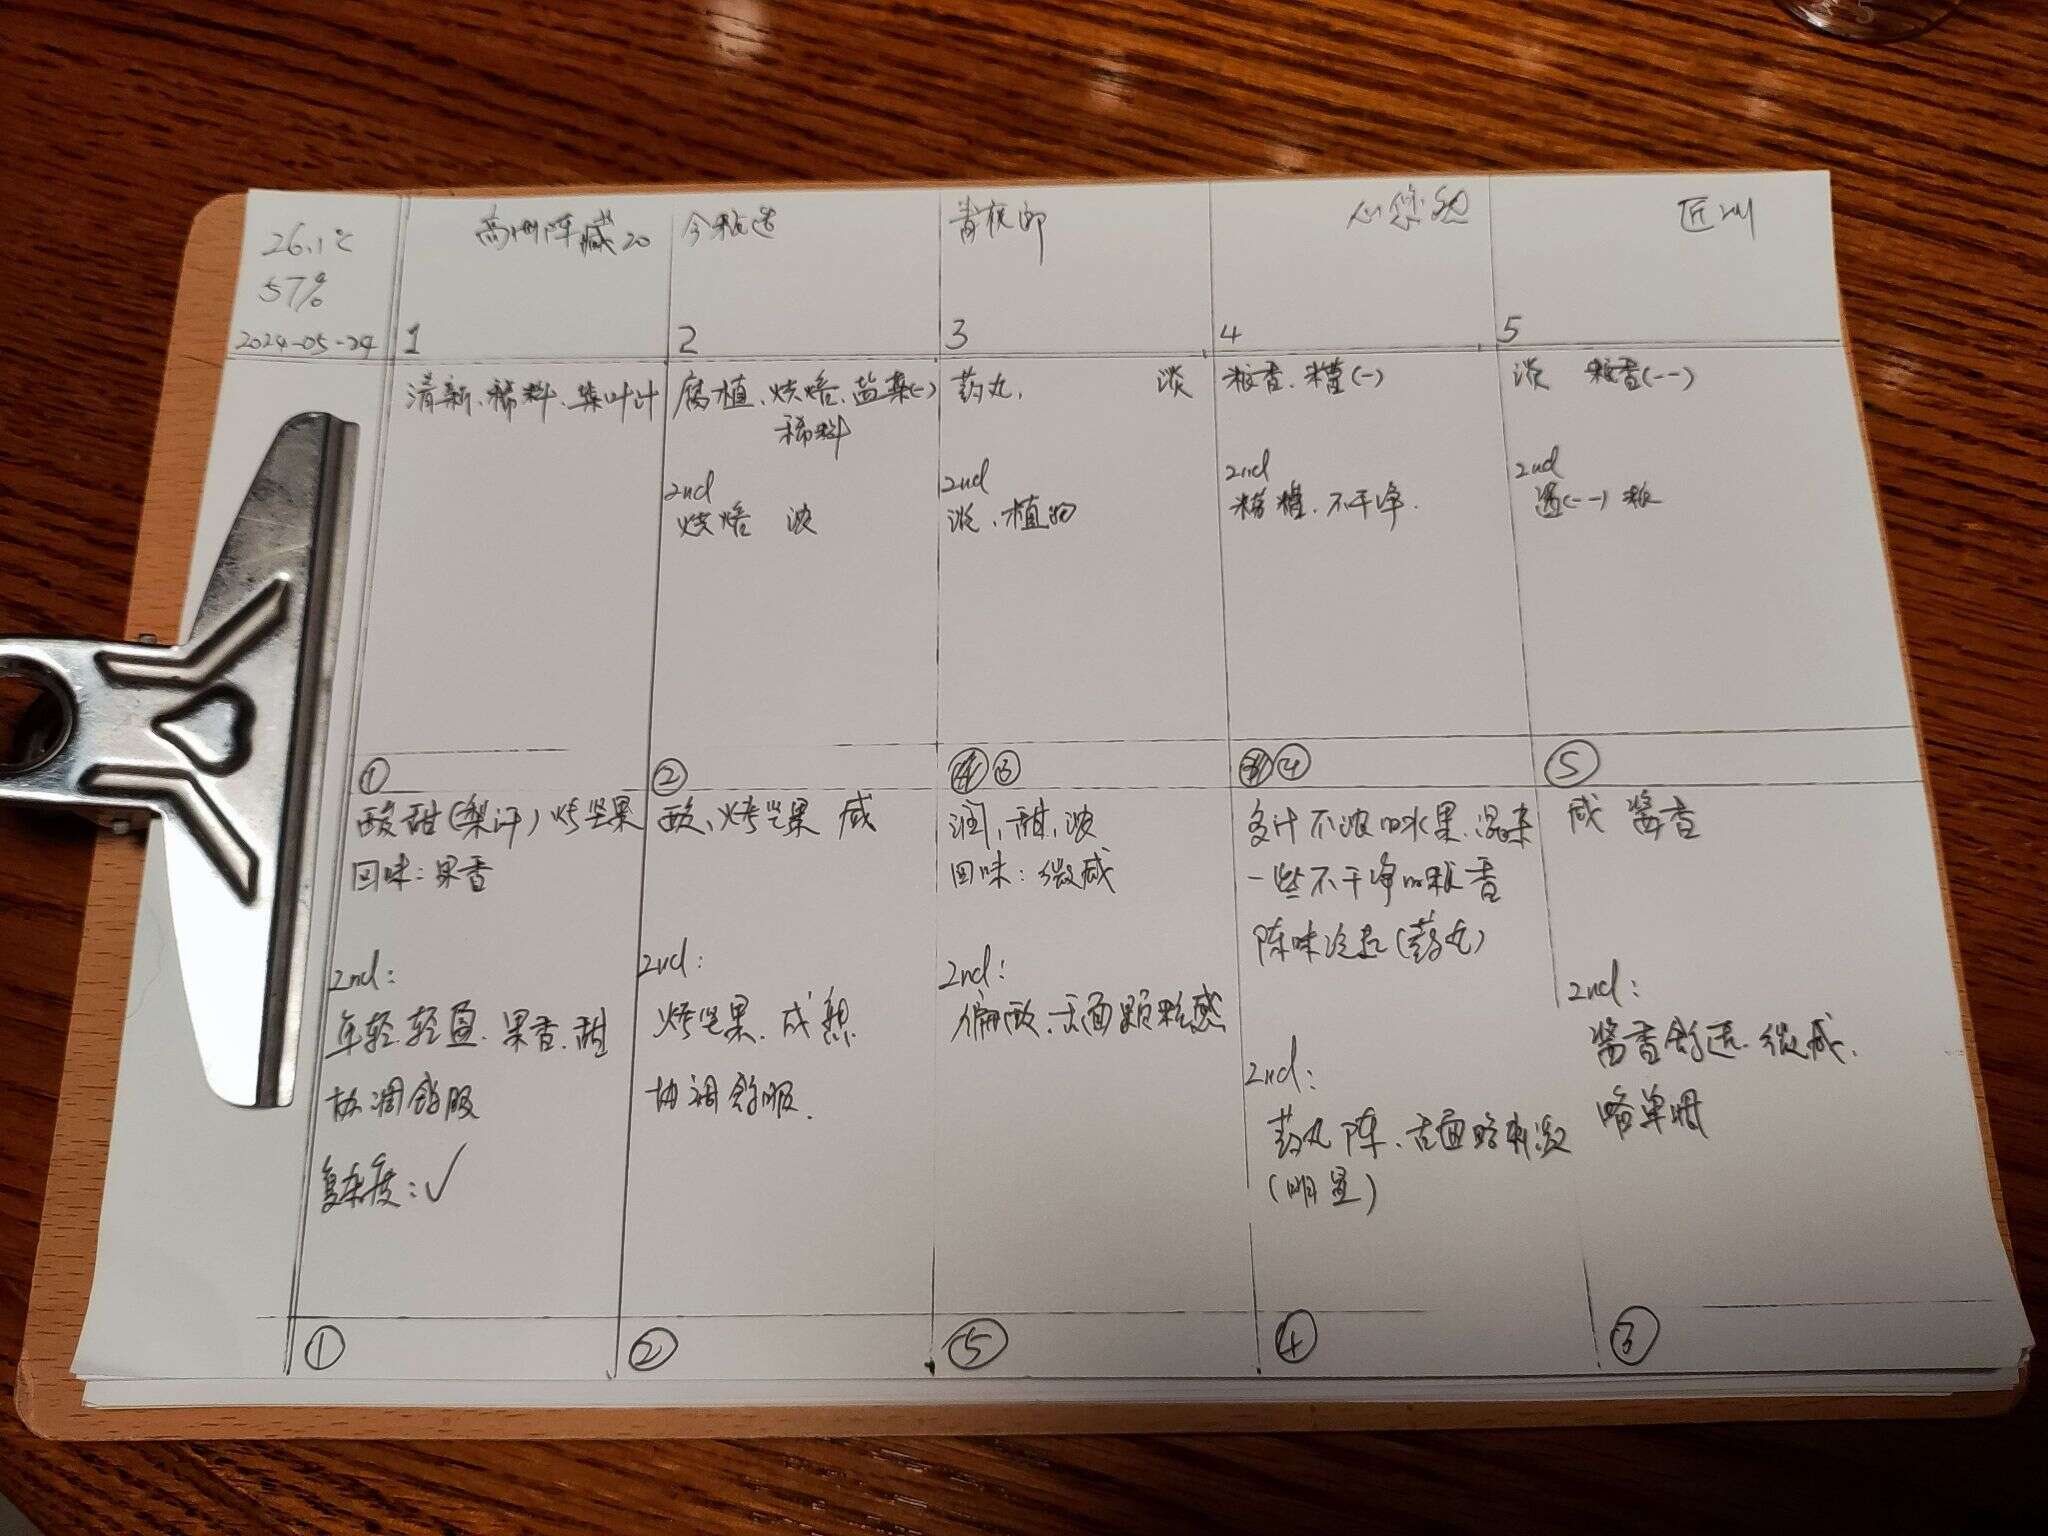 26.1℃
57%
2024-05-24
藏20
青花郎
匠
1
2
3
4
5
清新、稀料、菜叶汁
腐植、烘焙、盐菜(-)
稀料
2nd
烘焙 浓
药丸, 淡
2nd
淡、植物
粮香、糟(-)
2nd
糟、不干净.
淡 粮香(--)
2nd
(--) 粮
①
②
③
④
⑤
酸甜(梨汁)烤坚果
回味:果香
2nd:
年轻.轻盈.果香.甜
协调舒服
复杂度:✓
酸、烤坚果 咸
2nd:
烤坚果.成熟
协调舒服.
润,甜,浓
回味:微咸
2nd:
偏酸.舌面颗粒感
多汁不浓的水果.混杂
一些不干净的粮香
陈味(药丸)
2nd:
药丸陈.舌面略刺激
(明显)
咸 酱香
2nd:
酱香舒适.微咸.
略单调
①
②
⑤
④
③